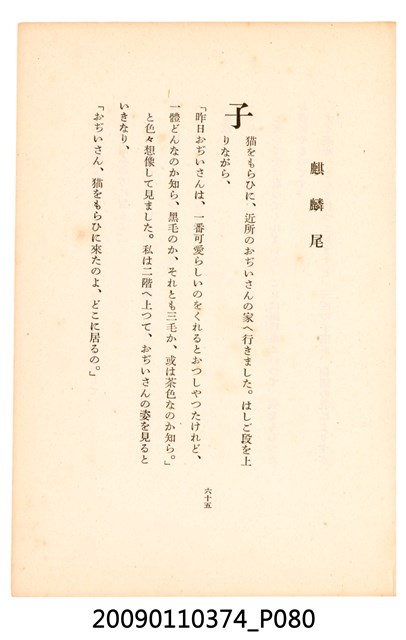 麒麟尾
子猫をもらひに、近所のおぢいさんの家へ行きました。はしご段を上
りながら、
「昨日おぢいさんは、一番可愛らしいのをくれるとおつしやつたけれど、
一體どんなのか知ら、黒毛のか、それとも三毛か、或は茶色なのか知ら。」
と色々想像して見ました。私は二階へ上つて、おぢいさんの姿を見ると
いきなり、
「おぢいさん、猫をもらひに來たのよ、どこに居るの。」
六十五
20090110374_P080